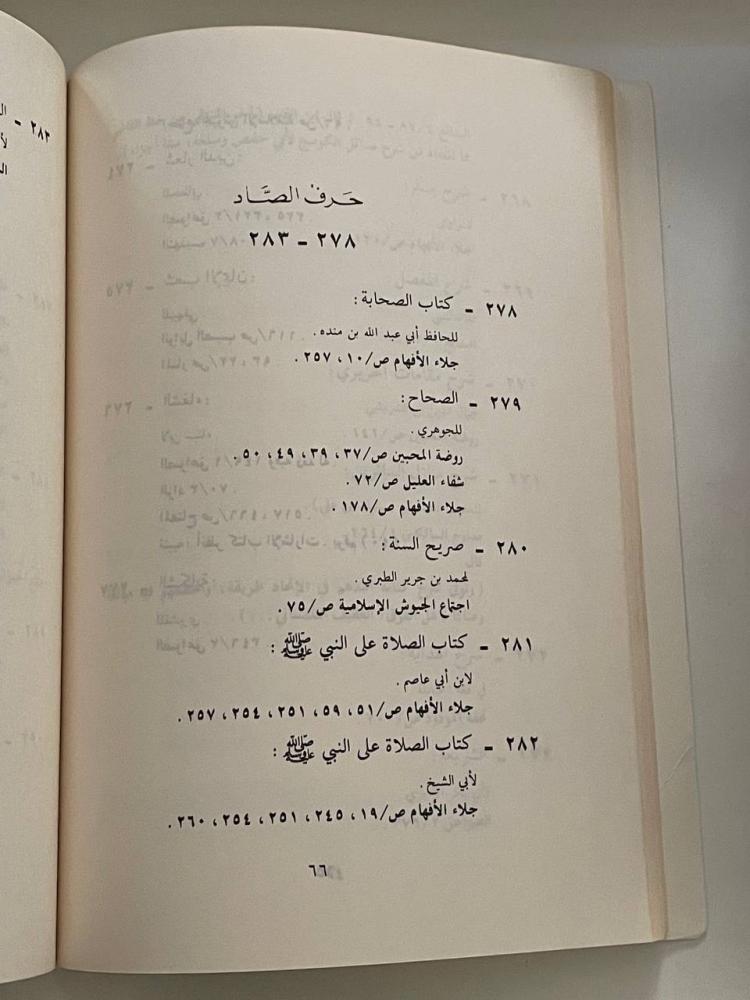 حَرفُ الصَّاد
٢٧٨ - ٢٨٣
٢٧٨ - كتاب الصحابة:
للحافظ أبي عبد الله بن منده.
جلاء الأفهام ص/١٠، ٢٥٧.
٢٧٩ - الصحاح:
للجوهري.
روضة المحبين ص/٣٧، ٣٩، ٤٩، ٥٠.
شفاء العليل ص/٧٢.
جلاء الأفهام ص/١٧٨.
٢٨٠ - صريح السنة:
لمحمد بن جرير الطبري.
اجتماع الجيوش الإسلامية ص/٧٥.
٢٨١ - كتاب الصلاة على النبي ﷺ:
لابن أبي عاصم.
جلاء الأفهام ص/٥١، ٥٩، ٢٥١، ٢٥٤، ٢٥٧.
٢٨٢ - كتاب الصلاة على النبي ﷺ:
لأبي الشيخ.
جلاء الأفهام ص/١٩، ٢٤٥، ٢٥١، ٢٥٤، ٢٦٠.
٦٦
٢٨٣ -